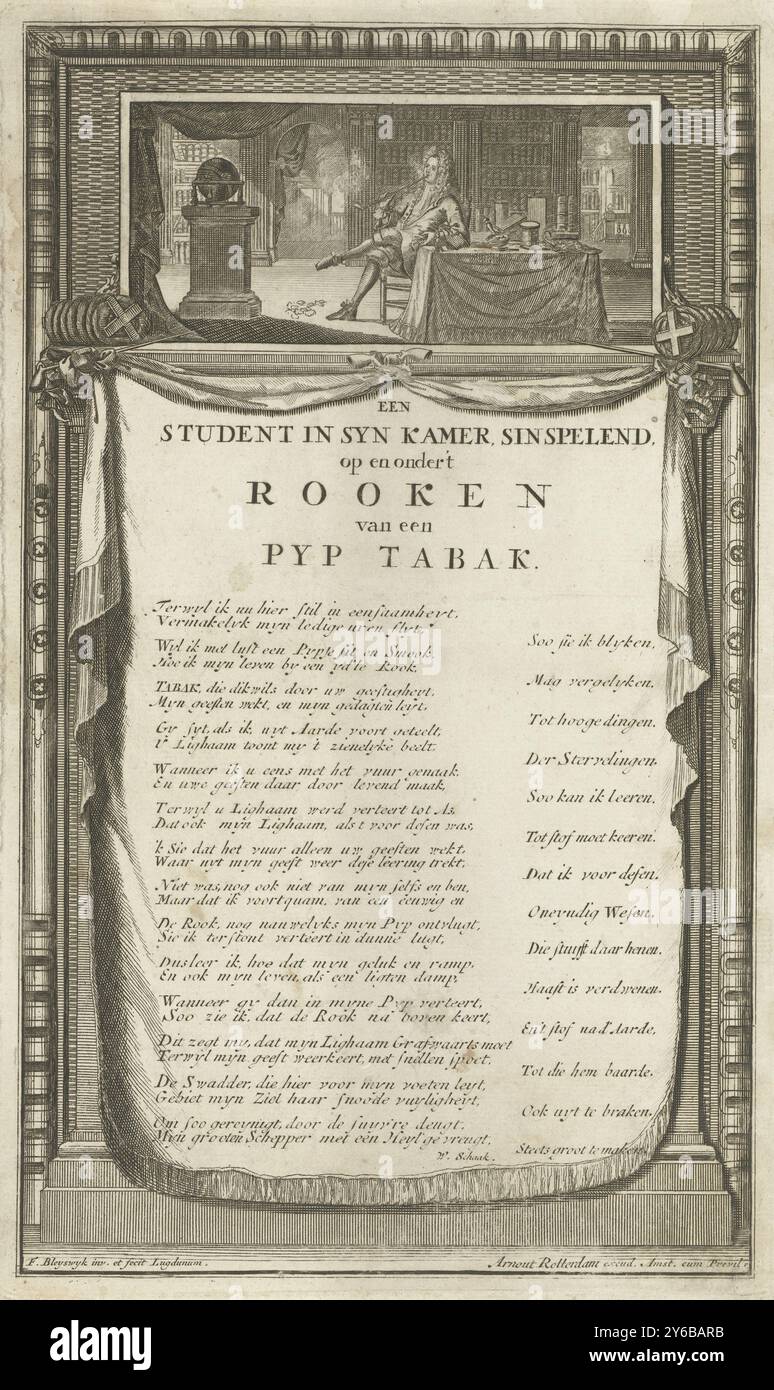 EEN
STUDENT IN SYN KAMER, SINSPELEND,
op en onder't
ROOKEN
van een
PYP TABAK.
Terwyl ik nu hier stil in eensaamheyt,
Vermakelyk myn ledige uren slyt,
Soo sie ik blyken,
Wyl ik met lust een Pypje sit en Smook,
Hoe ik myn leven by een yd'le Rook,
Mag vergelyken.
TABAK, die dikwils door uw geestigheyt,
Myn geesten wekt, en myn gedagten leyt,
Tot hooge dingen.
Gy syt, als ik, uyt Aarde voort geteelt,
U Lighaam toont my 't zienelyke beelt.
Der Stervelingen.
Wanneer ik u eens met het vuur genaak,
En uwe geesten daar door levend maak,
Soo kan ik leeren,
Terwyl u Lighaam werd verteert tot As,
Dat ook myn Lighaam, als t voor desen was,
Tot stof moet keeren.
'k Sie dat het vuur alleen uw geesten wekt,
Waar uyt myn geest weer dese leering trekt,
Dat ik voor desen,
Niet was, nog ook niet van myn selfs en ben,
Maar dat ik voortquam, van een eeuwig en
Oneyndig Wesen.
De Rook, nog nauwelyks myn Pyp ontvlugt,
Sie ik terstont verteert in dunne lugt,
Die stuyft daar henen.
Dus leer ik, hoe dat myn geluk en ramp,
En ook myn leven, als een ligten damp,
Haast is verdwenen.
Wanneer gy dan in myne Pyp verteert,
Soo zie ik, dat de Rook na boven keert,
En't stof na d'Aarde,
Dit zegt my, dat myn Lighaam Grafwaarts moet
Terwyl myn geest weerkeert, met snellen spoet.
Tot die hem baarde.
De Swadder, die hier voor myn voeten leyt,
Gebiet myn Ziel haar snoode vuyligheyt,
Ook uyt te braken,
Om soo gereynigt, door de suyv're deugt,
Myn grooten Schepper met een Heyl'ge vreugt,
Steets groot te maken.
W. Schaak.
F. Bleyswyk inv. et fecit Lugdunum.
Arnout Rotterdam excud. Amst. cum Previl.
alamy
Image ID: 2Y6BARB
www.alamy.com